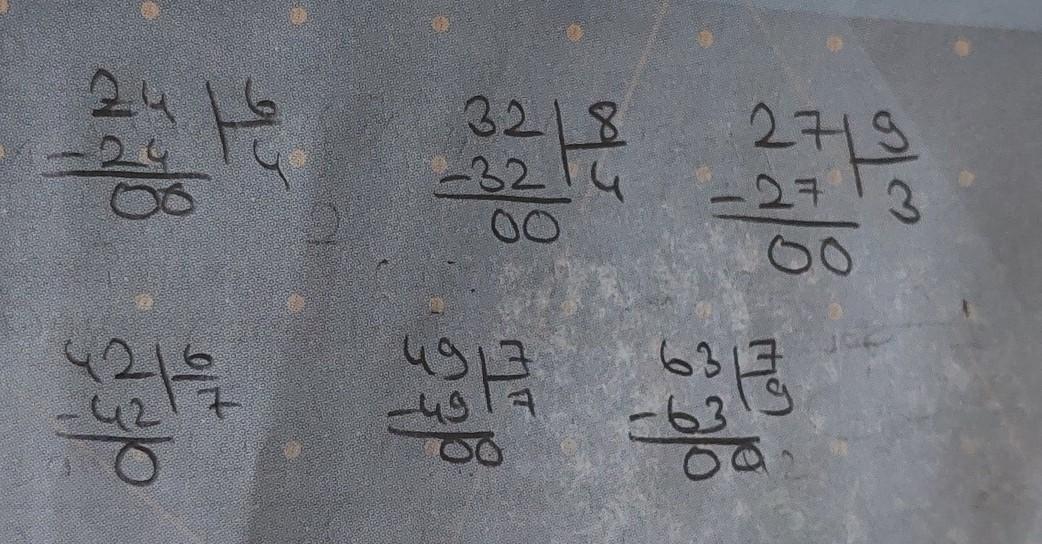 24 6
-24 4
00
32 8
-32 4
00
27 9
-27 3
00
42 6
-42 7
0
49 7
-49 7
00
63 7
-63 9
00